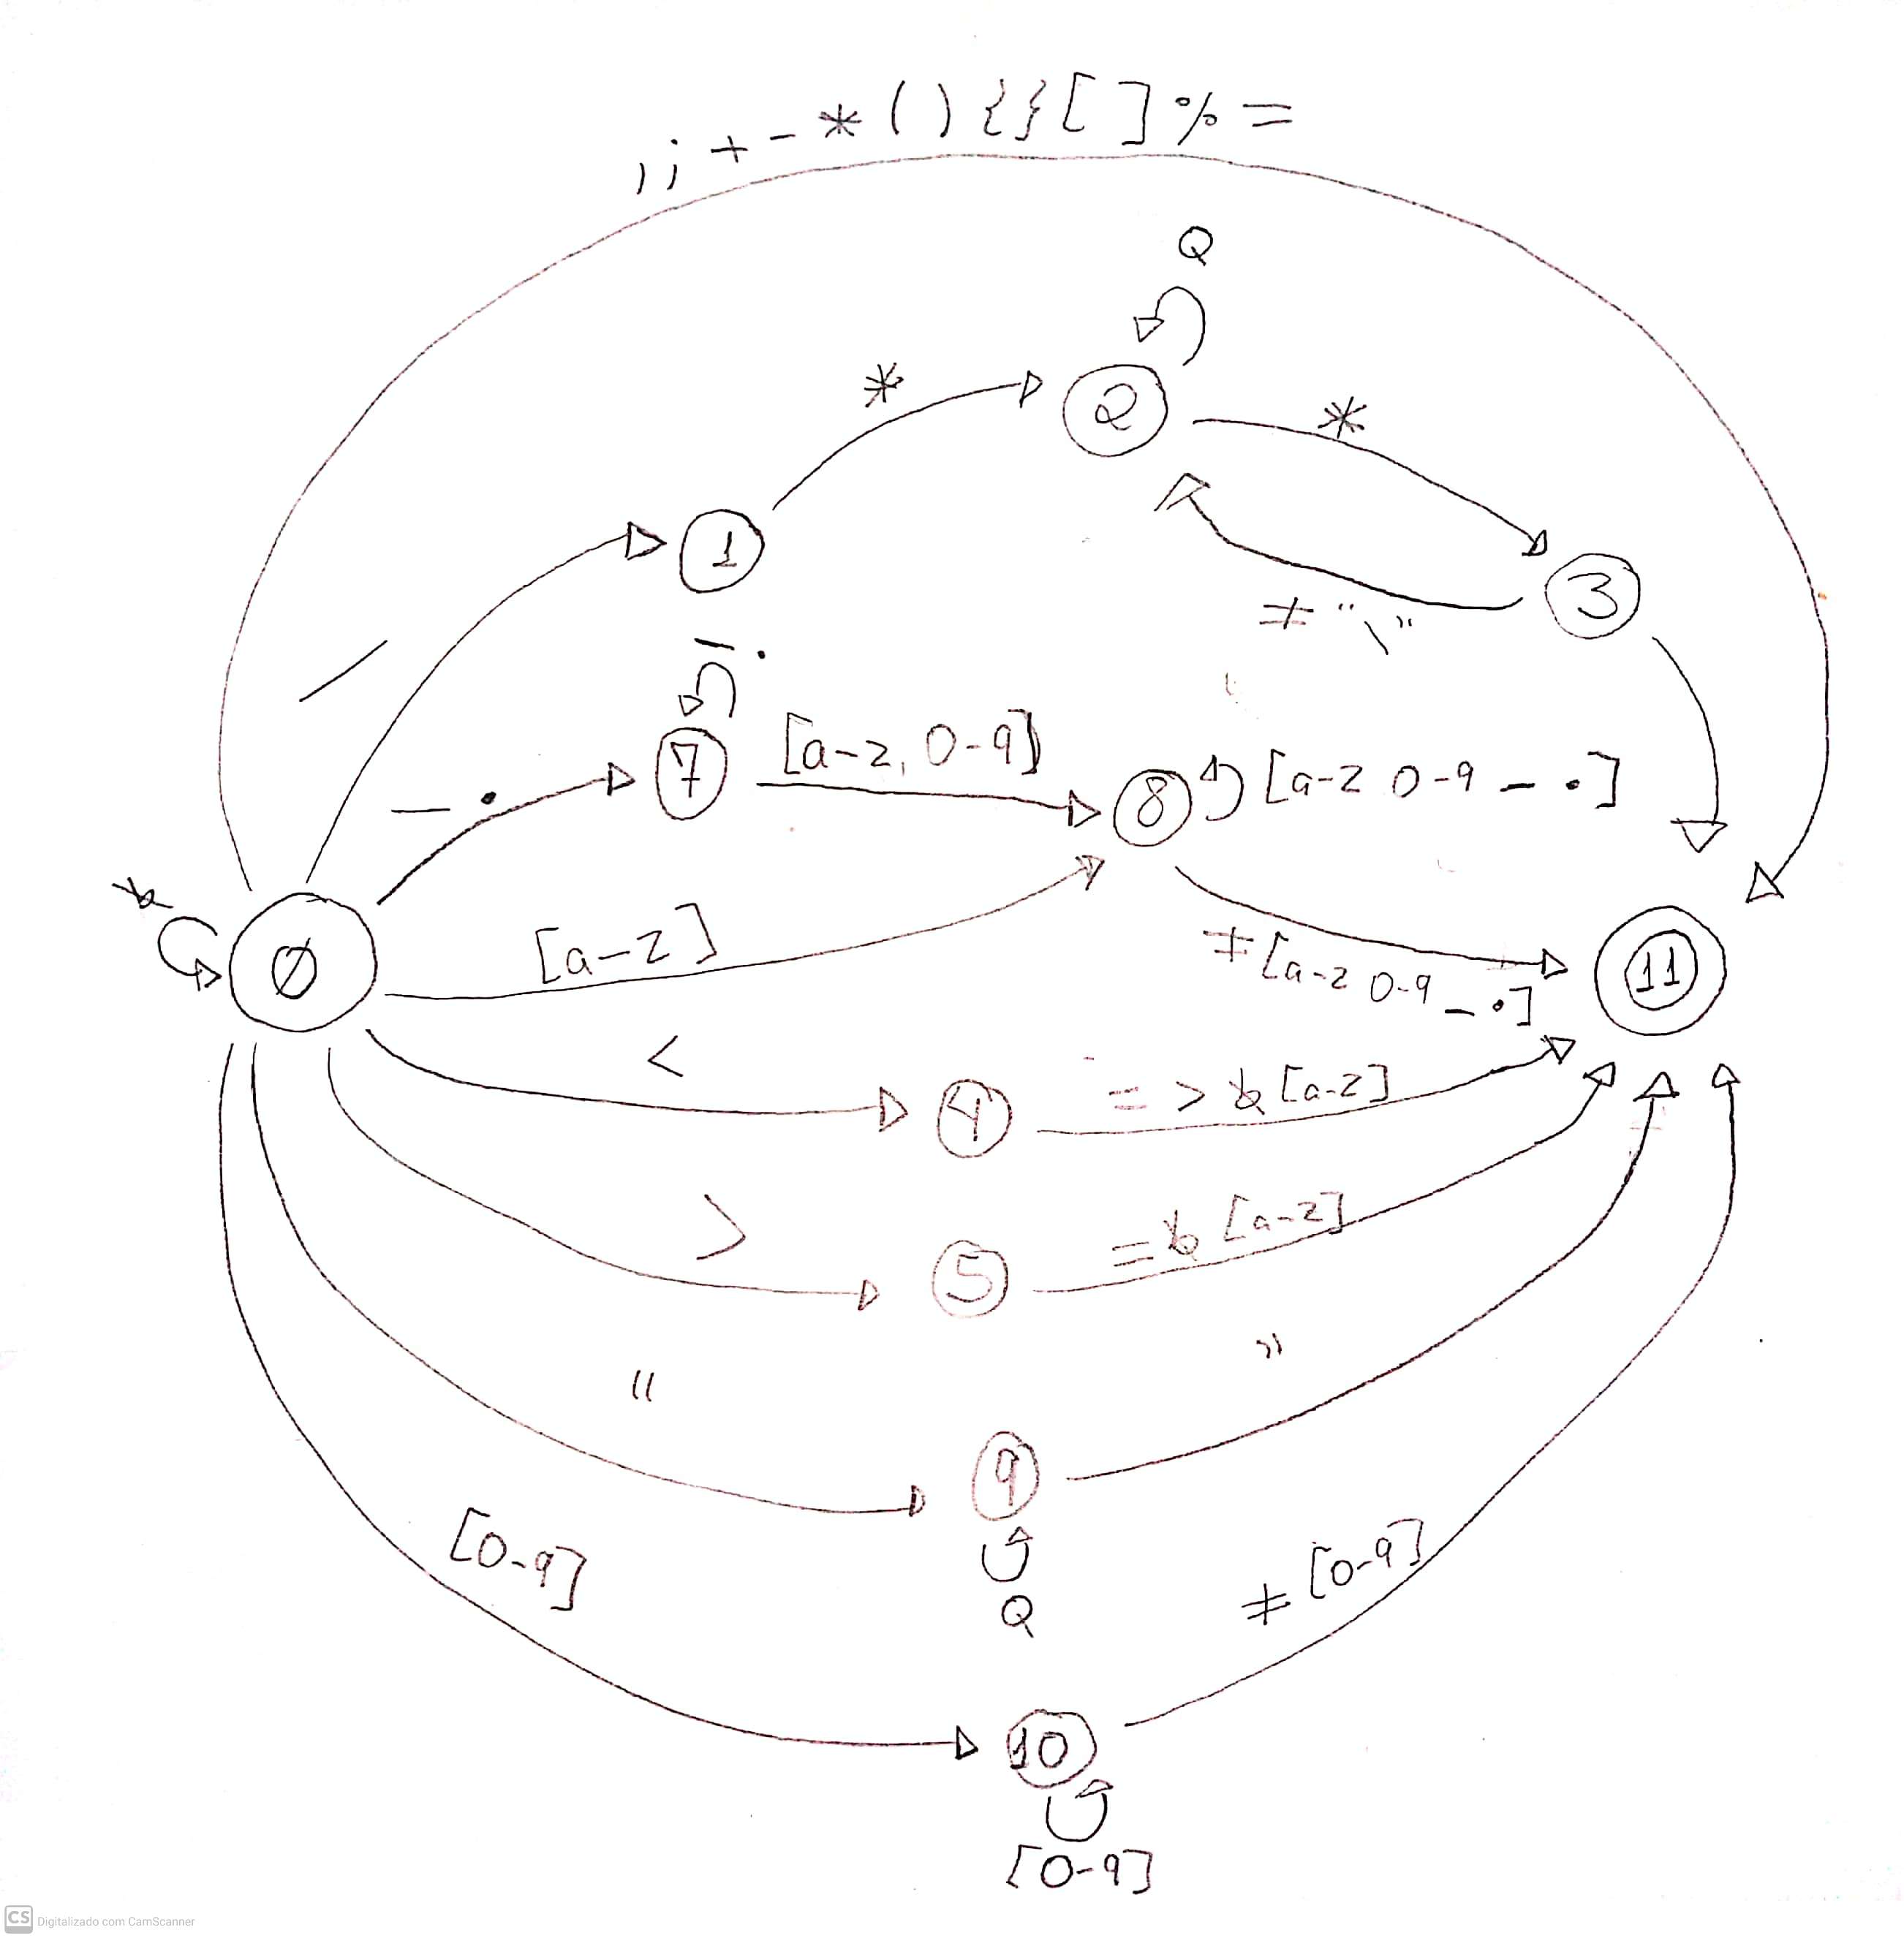 , ; + - * ( ) { } [ ] % =
Q
*
2
*
1
3
≠ "\"
/
_ .
7
[a-z, 0-9]
8
[a-z 0-9 _ .]
_ .
ƀ
0
[a-z]
≠ [a-z 0-9 _ .]
11
<
4
= > ƀ [a-z]
>
5
= ƀ [a-z]
"
"
9
Q
[0-9]
≠ [0-9]
10
[0-9]
CS Digitalizado com CamScanner